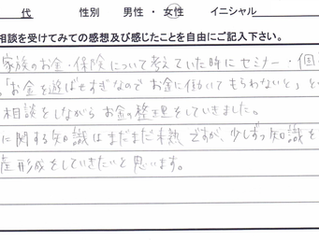 代 性別 男性・女性 イニシャル
相談を受けてみての感想及び感じたことを自由にご記入下さい。
家族のお金・保険について考えていた時にセミナー・個
「お金を遊ばせすぎなのでお金に働いてもらわないと」と
相談をしながらお金の整理をしていきました。
に関する知識はまだまだ未熟ですが、少しずつ知識を
産形成をしていきたいと思います。